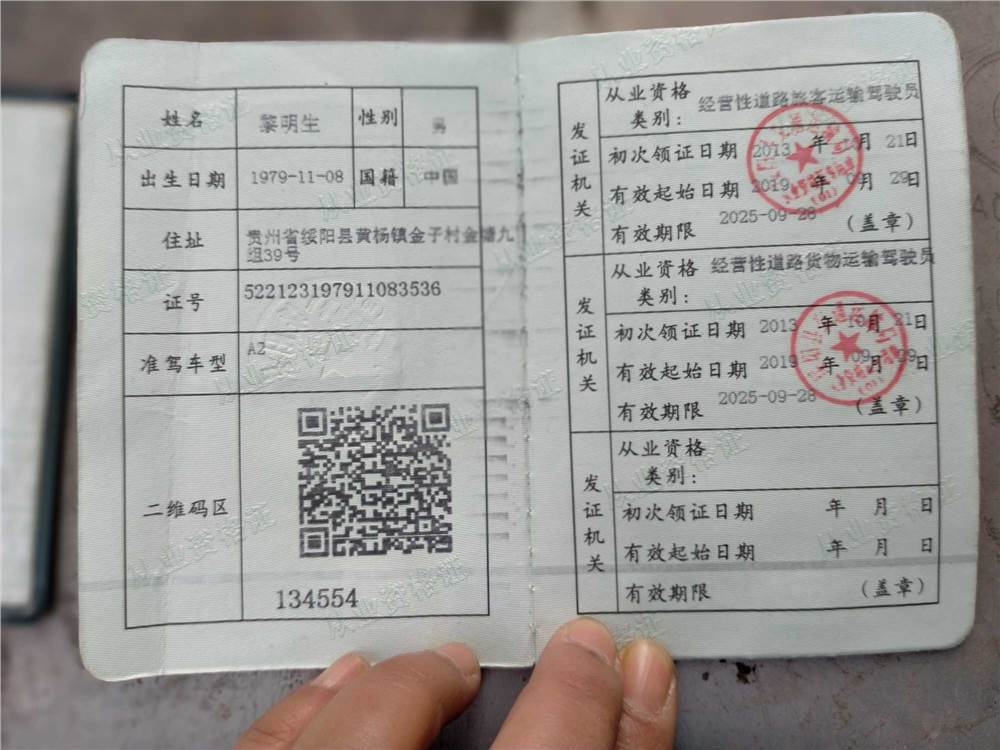 姓名 黎明生 性别 男
出生日期 1979-11-08 国籍 中国
住址 贵州省绥阳县黄杨镇金子村金塘九
组39号
证号 522123197911083536
准驾车型 A2
二维码区
134554
发证机关
从业资格 经营性道路旅客运输驾驶员
类别:
初次领证日期 2013 年 月 21日
有效起始日期 2019 年 月 29日
有效期限 2025-09-28 (盖章)
发证机关
从业资格 经营性道路货物运输驾驶员
类别:
初次领证日期 2013 年 10月 21日
有效起始日期 2019 年 09月 29日
有效期限 2025-09-28 (盖章)
发证机关
从业资格
类别:
初次领证日期 年 月 日
有效起始日期 年 月 日
有效期限 (盖章)